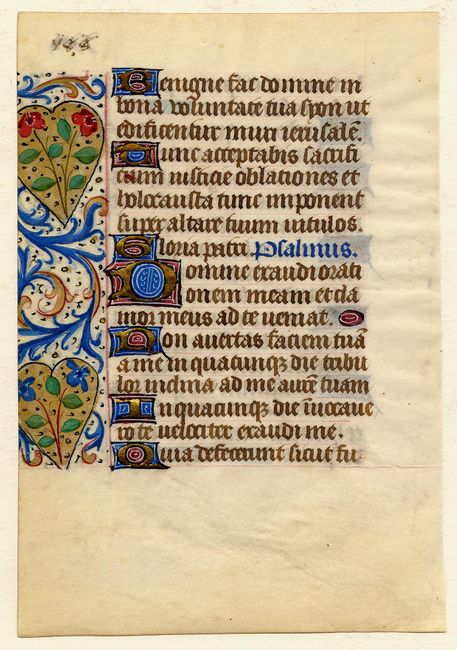 Benigne fac domine in
bona voluntate tua syon ut
edificentur muri ierusalē.
Tunc acceptabis sacrifi
cium iusticie oblationes et
holocausta tunc imponent
super altare tuum vitulos.
Gloria patri. Psalmus.
Domine exaudi orati
onem meam et cla
mor meus ad te veniat.
Non avertas faciem tuā
a me in quacunqꝫ die tribu
lor inclina ad me aurē tuam
In quacunqꝫ die īvocave
ro te velociter exaudi me.
Quia defecerunt sicut fu